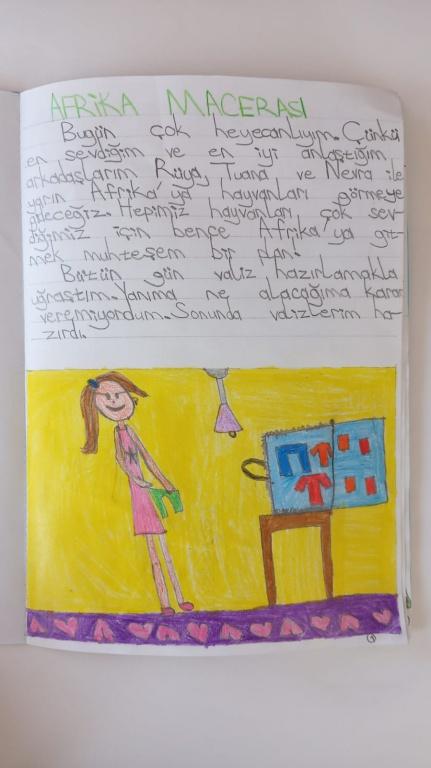 AFRİKA MACERASI
Bugün çok heyecanlıyım. Çünkü
en sevdiğim ve en iyi anlaştığım
arkadaşlarım Rüya, Tuana ve Nevra ile
yarın Afrika'ya hayvanları görmeye
gideceğiz. Hepimiz hayvanları çok sev-
diğimiz için bence Afrika'ya git-
mek muhteşem bir plan.
Bütün gün valiz hazırlamakla
uğraştım. Yanıma ne alacağıma karar
veremiyordum. Sonunda valizlerim ha-
zırdı.
1